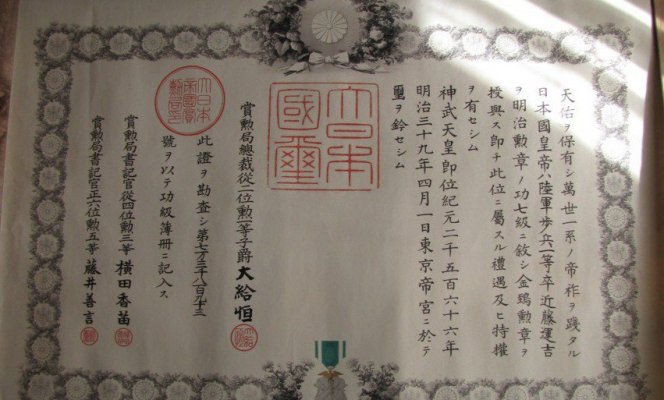 天佑ヲ保有シ萬世一系ノ帝祚ヲ踐タル
日本國皇帝ハ陸軍歩兵一等卒近藤運吉
ヲ明治勲章ノ功七級ニ敍シ金鵄勲章ヲ
授與ス即チ此位ニ屬スル禮遇及ヒ特權
ヲ有セシム
神武天皇即位紀元二千五百六十六年
明治三十九年四月一日東京帝宮ニ於テ
璽ヲ鈐セシム
大日本
國璽
賞勲局總裁從二位勲一等子爵 大給恒
此證ヲ勘査シ第七万三千八百九十三
號ヲ以テ功級簿冊ニ記入ス
大日本
帝國賞
勲局印
賞勲局書記官從四位勲三等 横田香苗
賞勲局書記官正六位勲五等 藤井善言